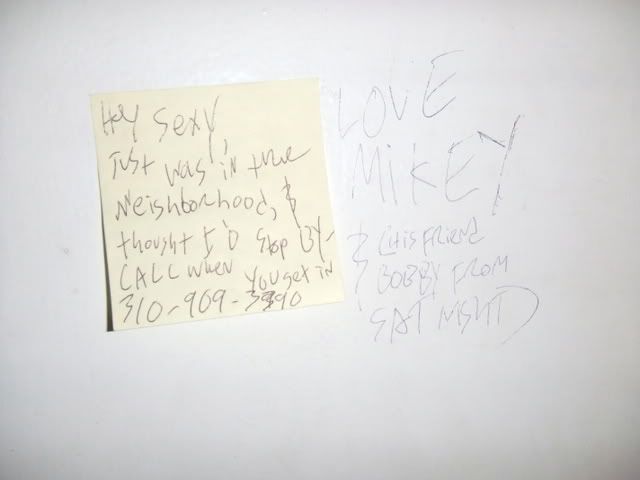 Hey Sexy!
Just was in the
Neighborhood, &
thought I'd stop BY-
CALL when you get in
310-909-3990
LOVE
MiKEY
& (HiS FRiEND
BOBBY FROM
SAT NIGHT)